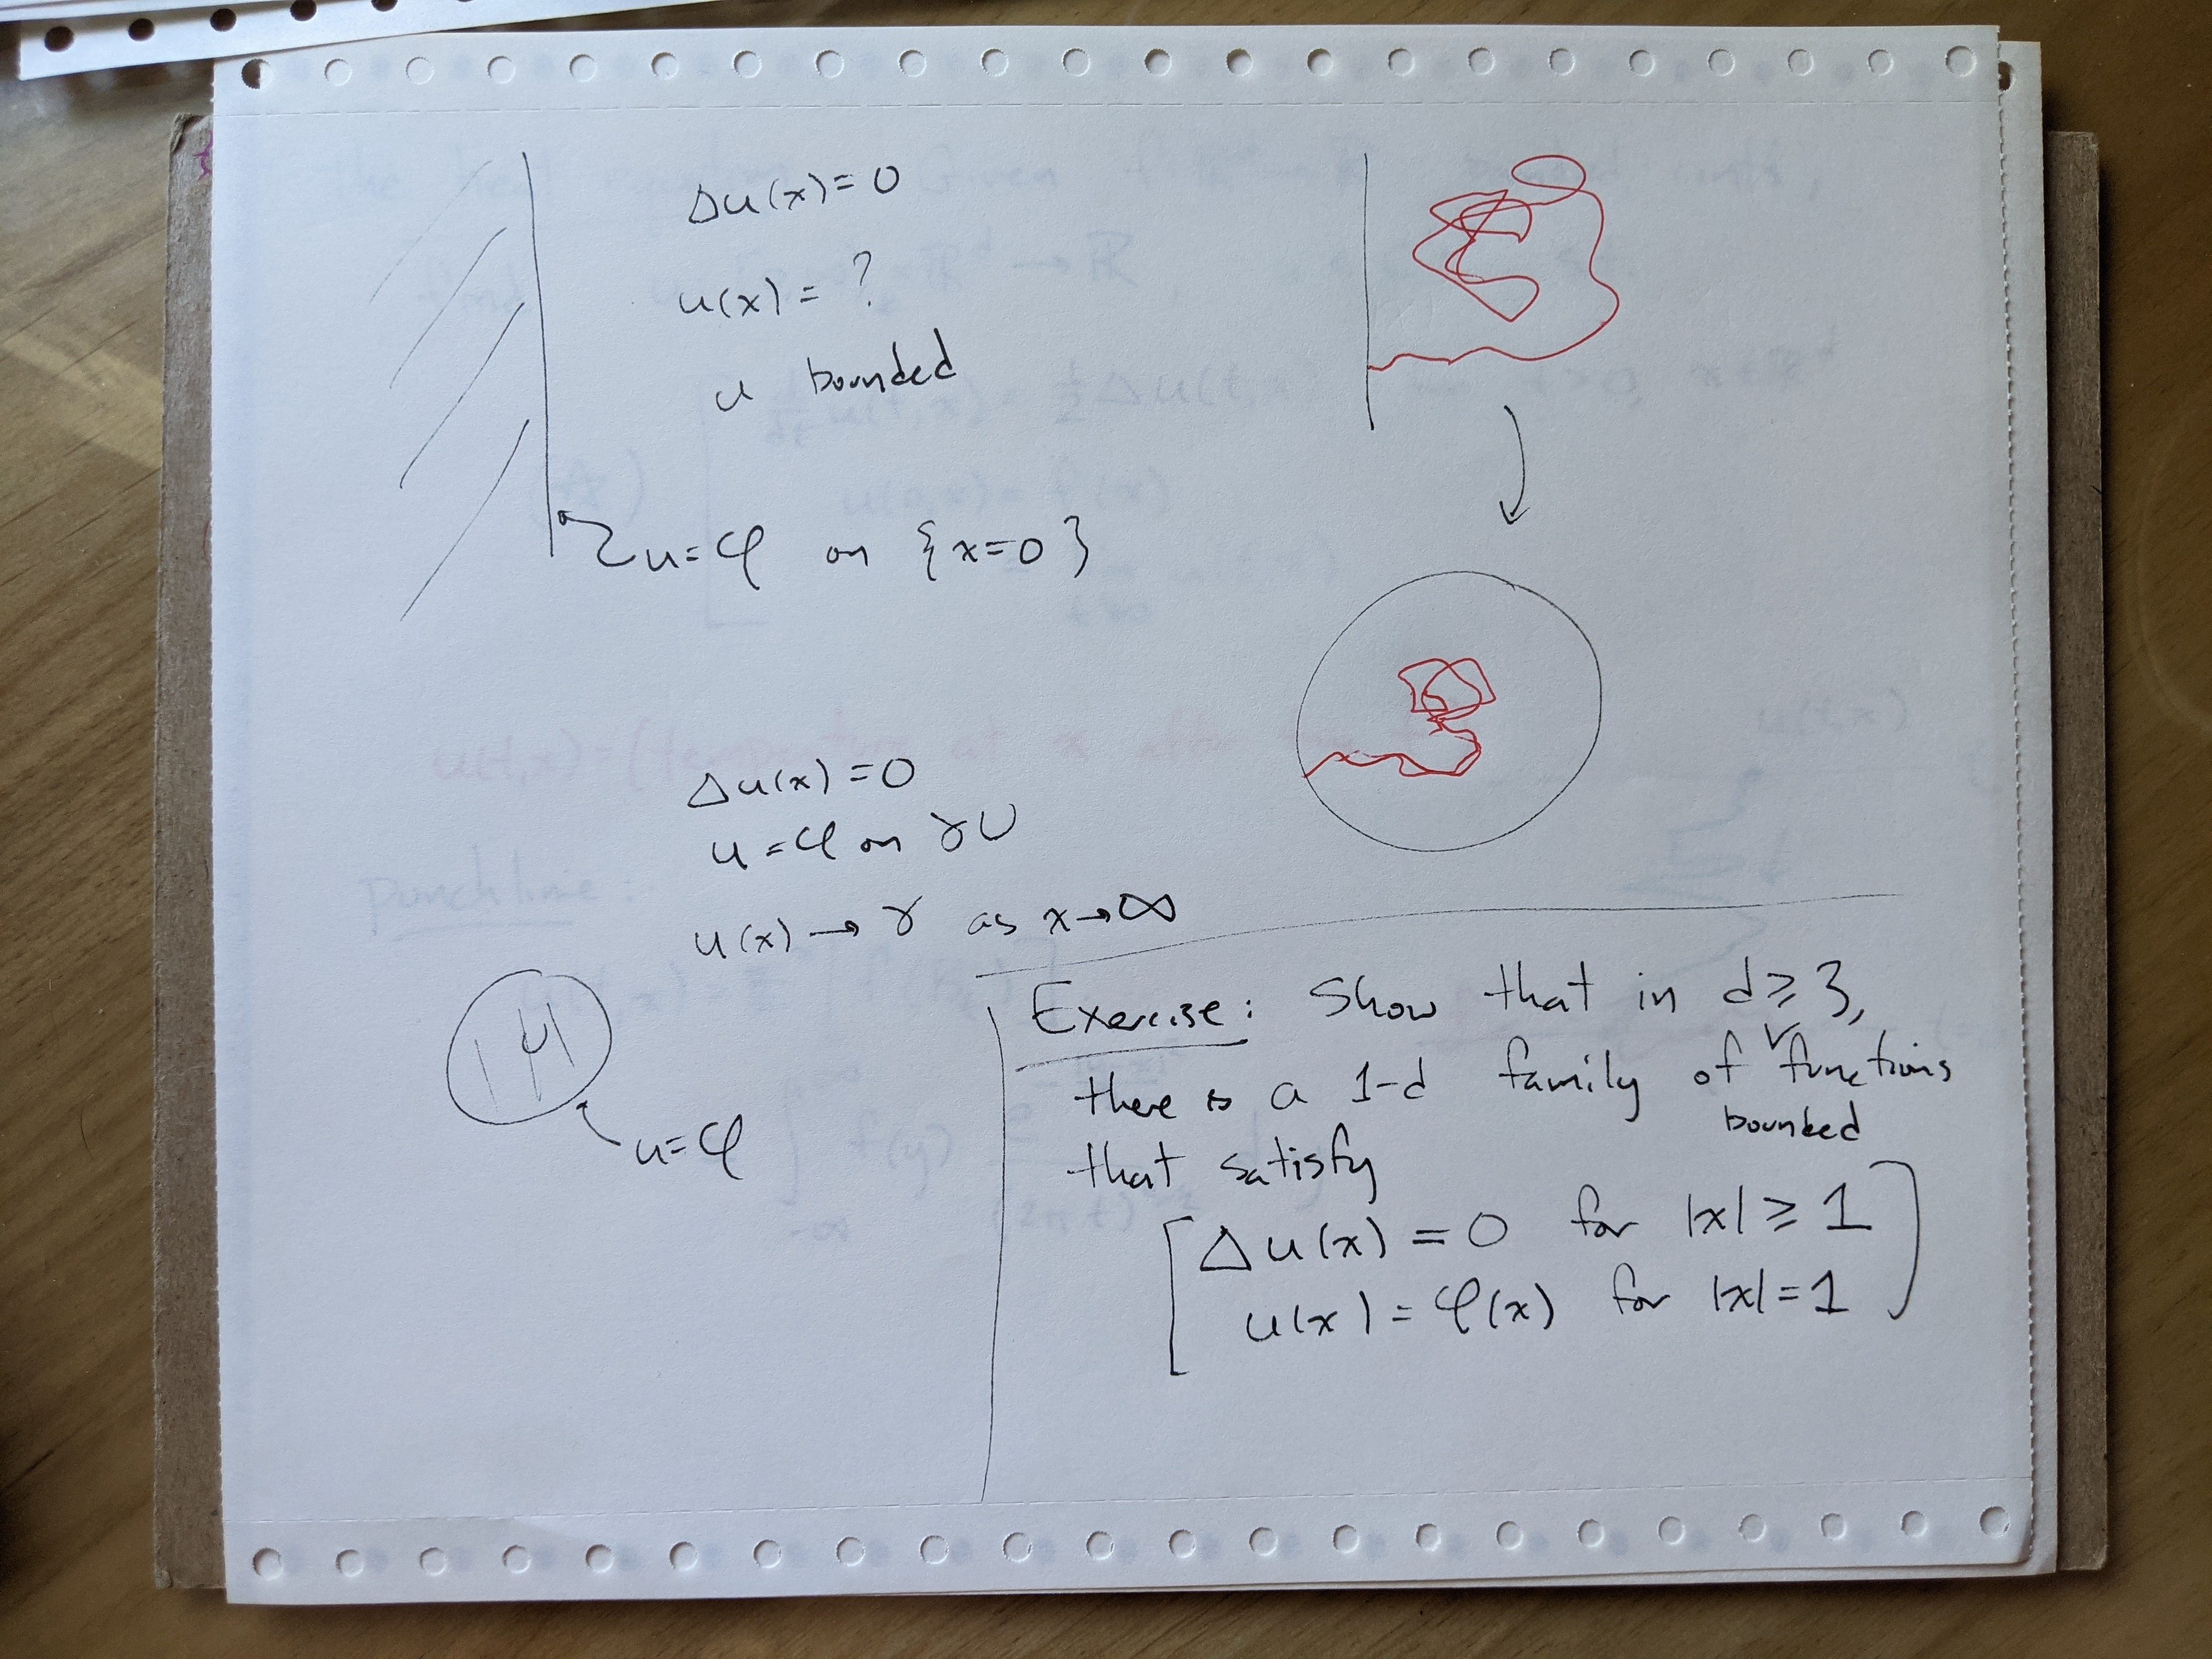 Δu(x)=0
u(x)=?
u bounded
u=φ on {x=0}
Δu(x)=0
u=φ on ∂U
u(x)→γ as x→∞
u=φ
Exercise: Show that in d≥3,
there is a 1-d family of bounded functions
that satisfy
Δu(x)=0 for |x|≥1
u(x)=φ(x) for |x|=1